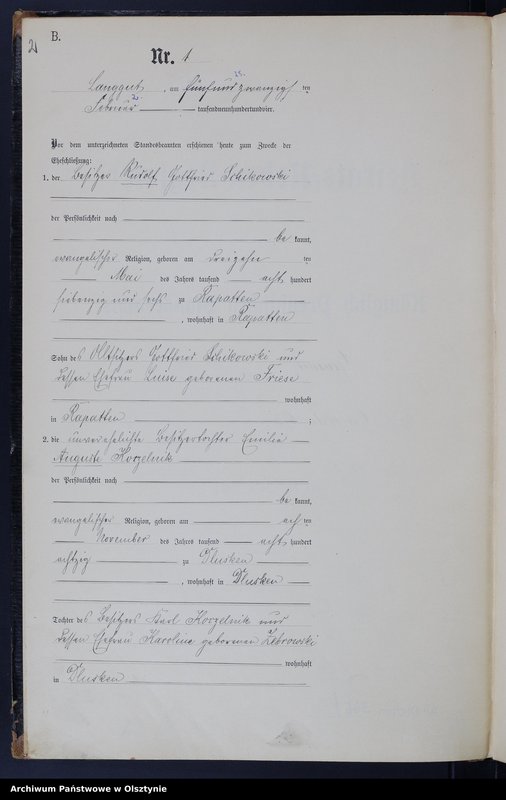 2
B.
Nr. 1
25.
Langgut, am fünfundzwanzigsten
2.
Februar tausendneunhundertundvier.
Vor dem unterzeichneten Standesbeamten erschienen heute zum Zwecke der
Eheschließung:
1. der Besitzer Rudolf Gottfried Schikowski
der Persönlichkeit nach
bekannt,
evangelischer Religion, geboren am dreizehnten
Mai des Jahres tausend acht hundert
siebenzig und sechs zu Rapatten
, wohnhaft in Rapatten
Sohn des Altsitzers Gottfried Schikowski und
dessen Ehefrau Luise geborenen Friese
wohnhaft
in Rapatten ;
2. die unverehelichte Besitzertochter Emilie
Auguste Korzelnik
der Persönlichkeit nach
bekannt,
evangelischer Religion, geboren am achten
November des Jahres tausend acht hundert
achtzig zu Dlusken
, wohnhaft in Dlusken
Tochter des Besitzers Karl Korzelnik und
dessen Ehefrau Karoline geborenen Zebrowski
wohnhaft
in Dlusken
Archiwum Państwowe w Olsztynie